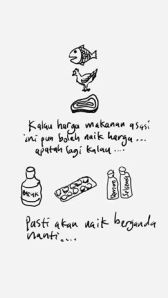 Kalau harga makanan asasi
ini pun boleh naik harga...
apatah lagi kalau....
Pasti akan naik berganda
nanti....